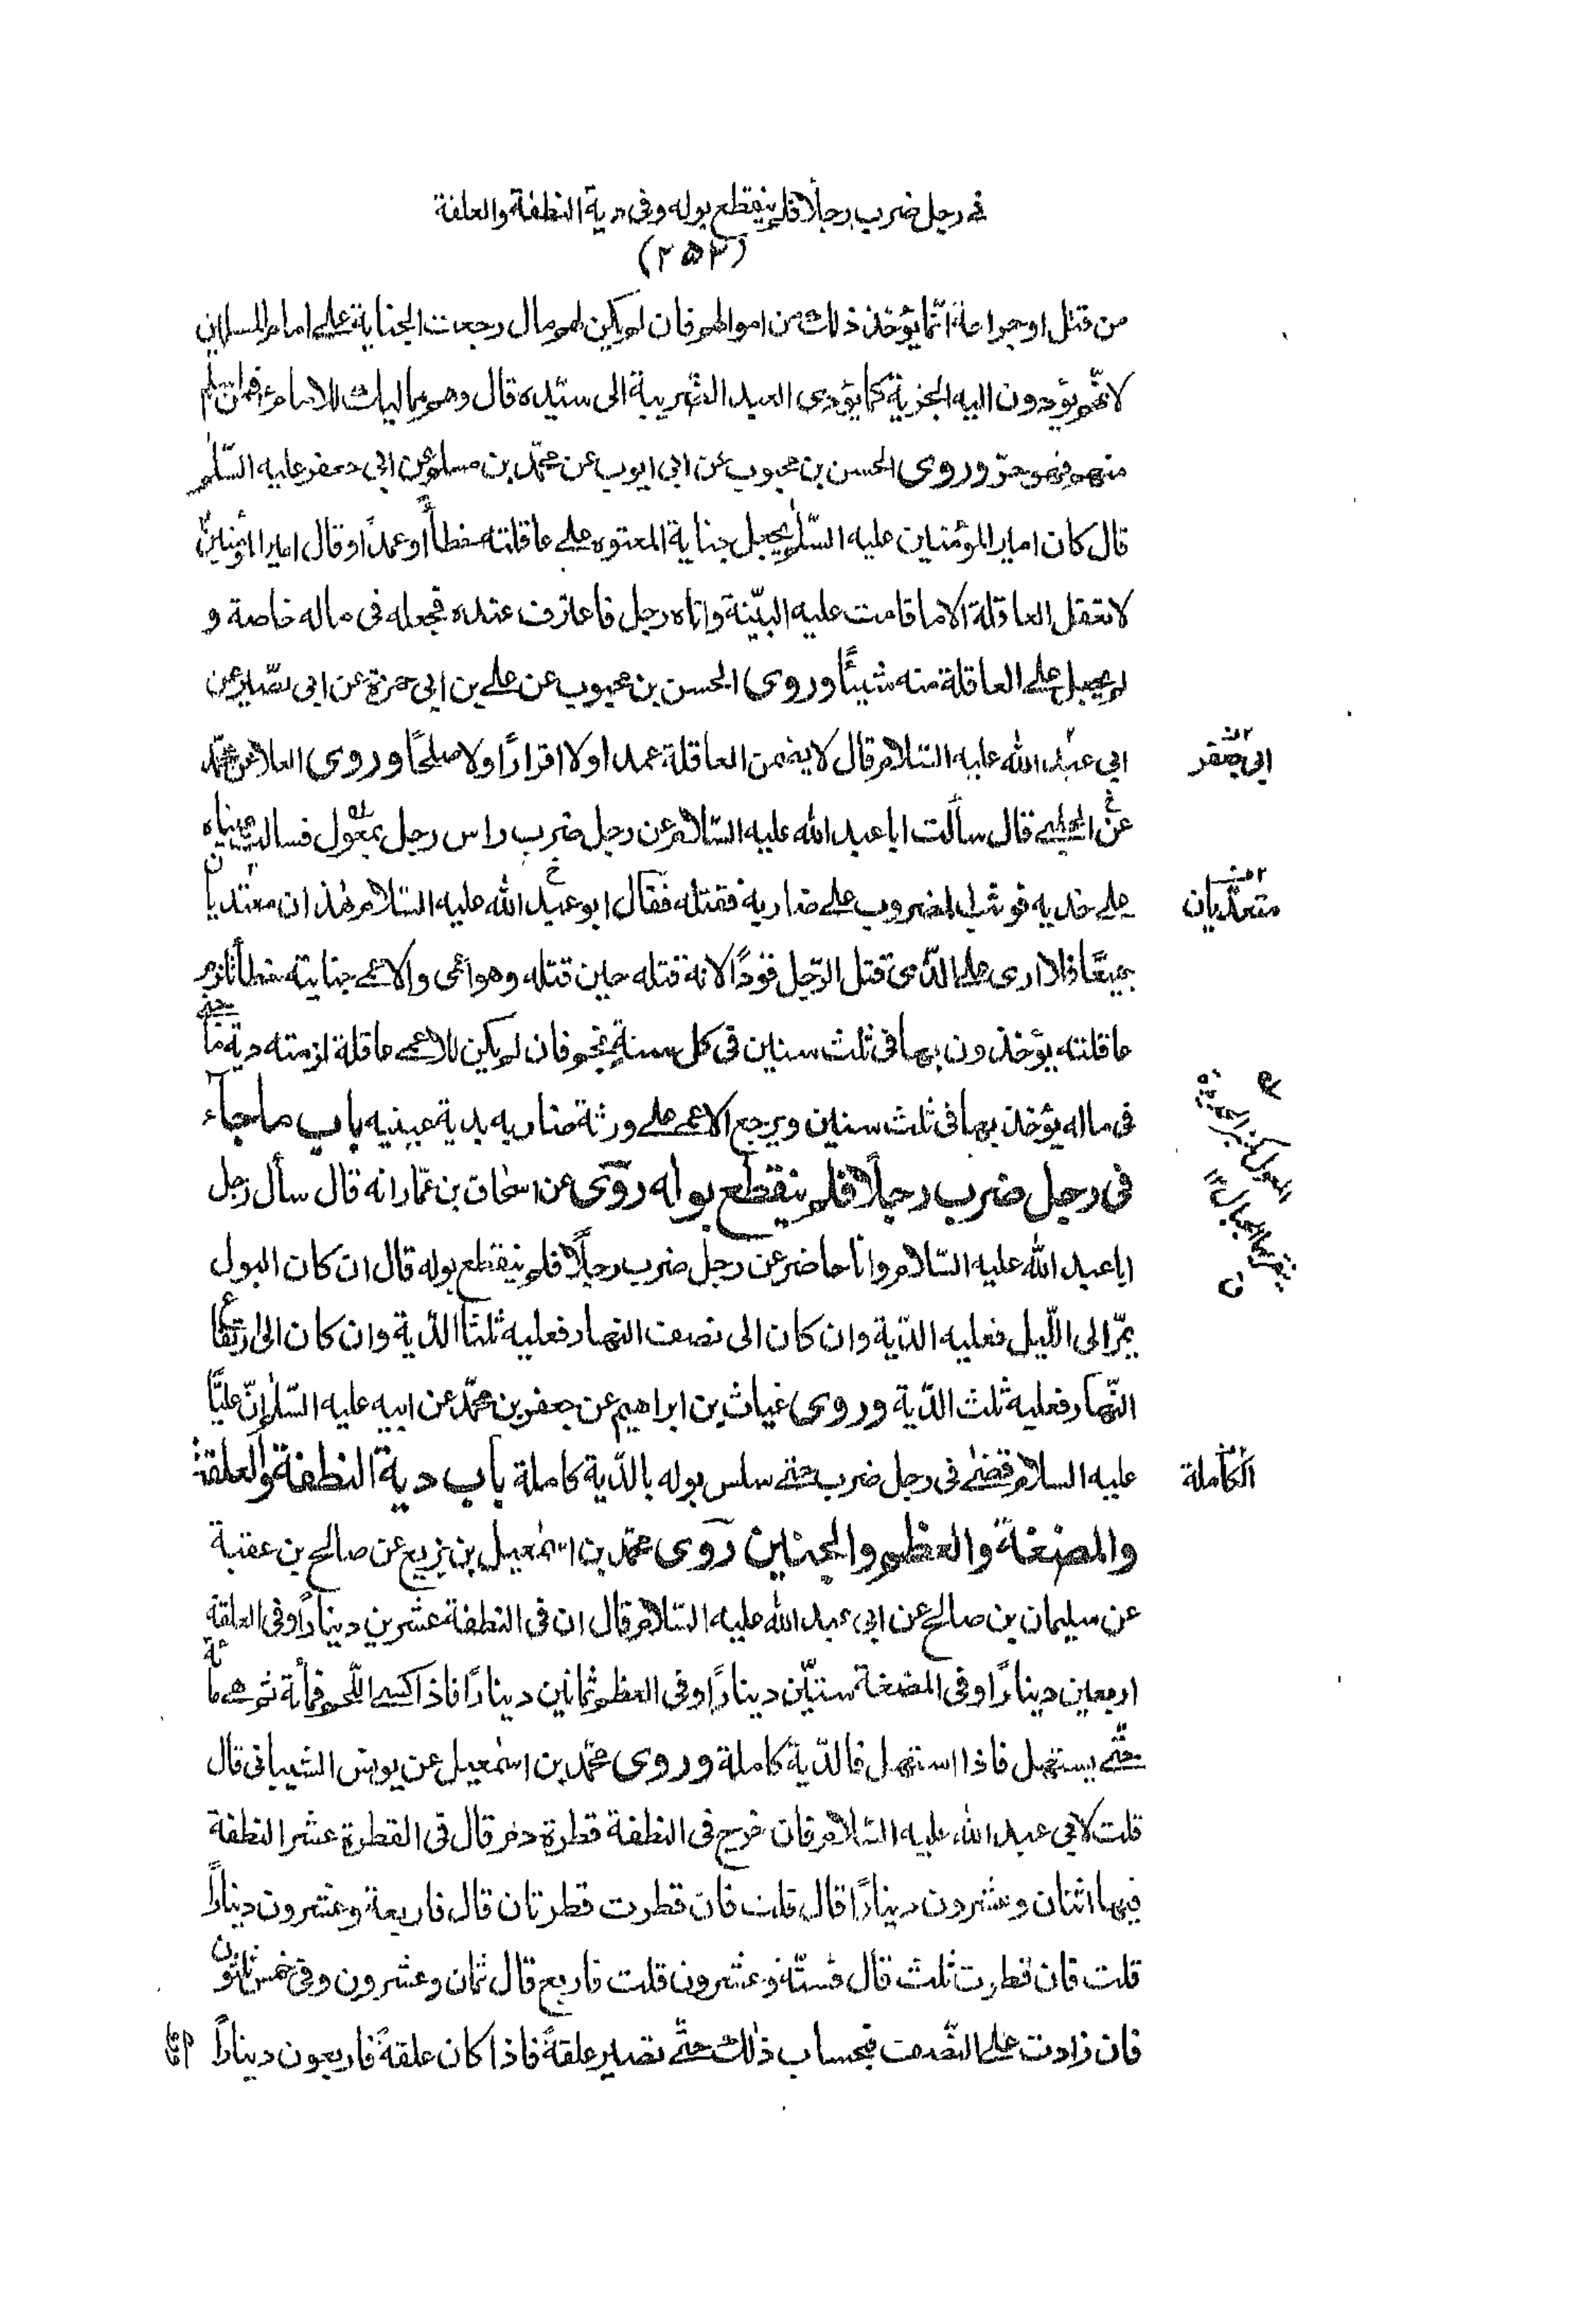 في رجل ضرب رجلًا فلم ينقطع بوله وفي دية النطفة والعلقة
(٢٥٢)
من قتل او جراحة انّما يؤخذ ذلك من اموالهم فان لم يكن لهم مال رجعت الجناية على امام المسلمين
لانّهم يؤدون اليه الجزية كما يؤدى العبد الضريبة الى سيّده قال وهم مماليك للامام فمن اسلم
منهم فهو حرّ وروى الحسن بن محبوب عن ابى ايوب عن محمّد بن مسلم عن ابى جعفر عليه السّلم
قال كان امير المؤمنين عليه السّلم يجعل جناية المعتوه على عاقلته خطأً او عمدًا وقال امير المؤمنين
لا تعقل العاقلة الا ما قامت عليه البيّنة واتاه رجل فاعترف عنده فجعله فى ماله خاصة و
لم يجعل على العاقلة منه شيئًا وروى الحسن بن محبوب عن على بن ابى حمزة عن ابى بصير عن
ابى جعفر
ابي عبد الله عليه السّلام قال لا يضمن العاقلة عمدا ولا اقرارًا ولا صلحًا وروى العلا عن محمّد
عن الحلبى قال سألت ابا عبد الله عليه السّلام عن رجل ضرب راس رجل بمعول فسالت عيناه
متعدّيان
على خديه فوثب المضروب على ضاربه فقتله فقال ابو عبد الله عليه السّلام هذان معتديان
جميعًا فلا ارى على الّذى قتل الرّجل قودًا لانه قتله حين قتله وهو اعمى والاعمى جنايته خطأ تلزم
عاقلته يؤخذون بها فى ثلث سنين فى كل سنة نجم فان لم يكن للاعمى عاقلة لزمته دية ما جنى
فى ماله يؤخذ بها فى ثلث سنين ويرجع الاعمى على ورثة ضاربه بدية عينيه باب ما جآء
فى رجل ضرب رجلًا فلم ينقطع بوله روى عن اسحاق بن عمّار انه قال سأل رجل
ابا عبد الله عليه السّلام وانا حاضر عن رجل ضرب رجلًا فلم ينقطع بوله قال ان كان البول
يمرّ الى اللّيل فعليه الدّية وان كان الى نصف النهار فعليه ثلثا الدّية وان كان الى ارتفاع
النّهار فعليه ثلث الدّية وروى غياث بن ابراهيم عن جعفر بن محمّد عن ابيه عليه السّلم انّ عليًّا
الكاملة
عليه السلام قضى فى رجل ضرب حتى سلس بوله بالدّية كاملة باب دية النطفة والعلقة
والمضغة والعظم والجنين روى محمّد بن اسمٰعيل بن بزيع عن صالح بن عقبة
عن سليمان بن صالح عن ابى عبد الله عليه السّلام قال ان فى النطفة عشرين دينارًا وفى العلقة
اربعين دينارًا وفى المضغة ستيّن دينارًا وفى العظم ثمانين دينارًا فاذا كسى اللّحم فمأة ثم هى مائة
حتّى يستهل فاذا استهل فالدّية كاملة وروى محمّد بن اسمٰعيل عن يونس الشيبانى قال
قلت لابى عبد الله عليه السّلام فان خرج فى النطفة قطرة دم قال فى القطرة عشر النطفة
فيها اثنان وعشرون دينارًا قال قلت فان قطرت قطرتان قال فاربعة وعشرون دينارًا
قلت فان قطرت ثلث قال فستّة وعشرون قلت فاربع قال ثمان وعشرون وفى خمس ثلثون
فان زادت على النّصف فبحساب ذٰلك حتّى تصير علقةً فاذا كان علقةً فاربعون دينارًا